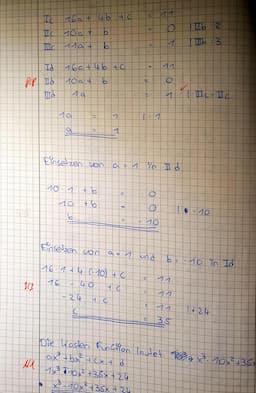 Ic 16a + 4b + c = 11
IIc 10a + b = 0 | IIb : 2
IIIc 11a + b = 1 | IIIb : 3
Id 16a + 4b + c = 11
IId 10a + b = 0
IIId 1a = 1 | IIIc - IIc
1a = 1 | : 1
a = 1
Einsetzen von a = 1 in IId
10 · 1 + b = 0
10 + b = 0 | - 10
b = - 10
Einsetzen von a = 1 und b = - 10 in Id
16 · 1 + 4 · (-10) + c = 11
16 - 40 + c = 11
- 24 + c = 11 | + 24
c = 35
Die Kosten Funktion lautet x³ - 10x² + 35x
ax³ + bx² + cx + d
1x³ - 10x² + 35x + 24
x³ - 10x² + 35x + 24